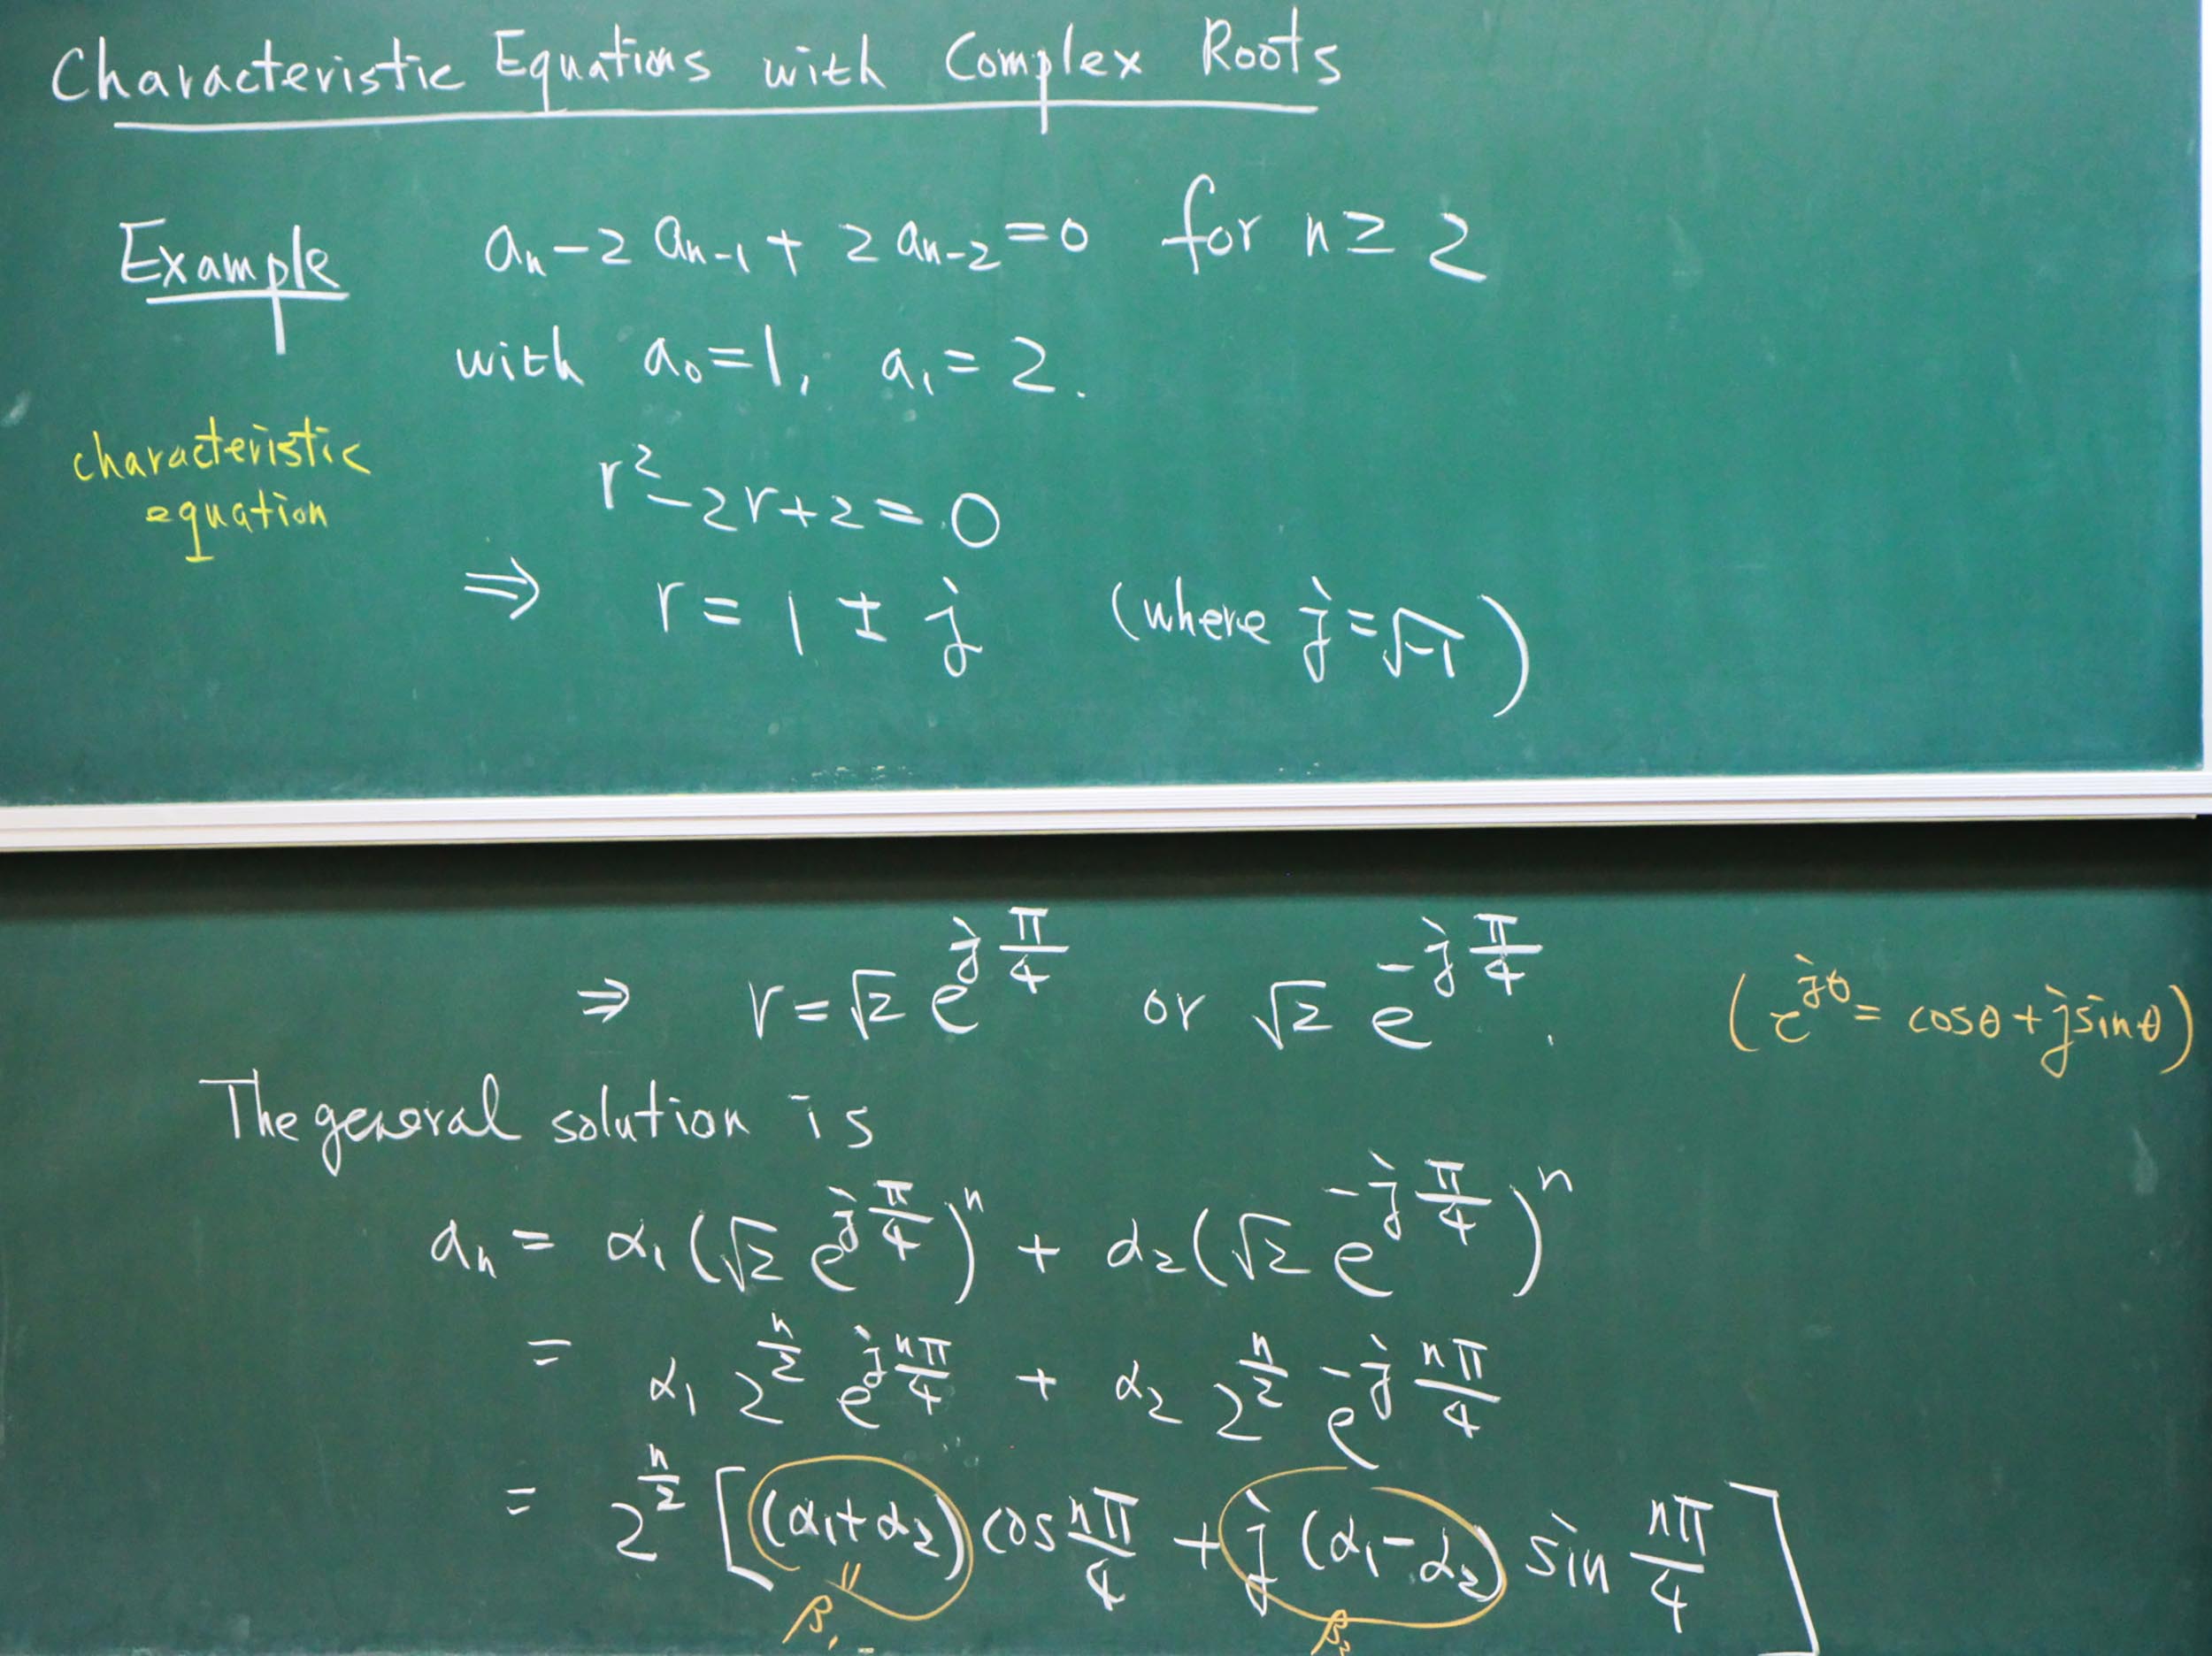 Characteristic Equations with Complex Roots
Example aₙ − 2 aₙ₋₁ + 2 aₙ₋₂ = 0 for n ≥ 2
with a₀ = 1, a₁ = 2.
characteristic
equation
r² − 2r + 2 = 0
⇒ r = 1 ± j (where j = √−1)
⇒ r = √2 e^{j π/4} or √2 e^{−j π/4}. (e^{jθ} = cosθ + j sinθ)
The general solution is
aₙ = α₁ (√2 e^{j π/4})ⁿ + α₂ (√2 e^{−j π/4})ⁿ
= α₁ 2^{n/2} e^{j nπ/4} + α₂ 2^{n/2} e^{−j nπ/4}
= 2^{n/2} [(α₁+α₂) cos nπ/4 + j (α₁−α₂) sin nπ/4]
= β₁ β₂